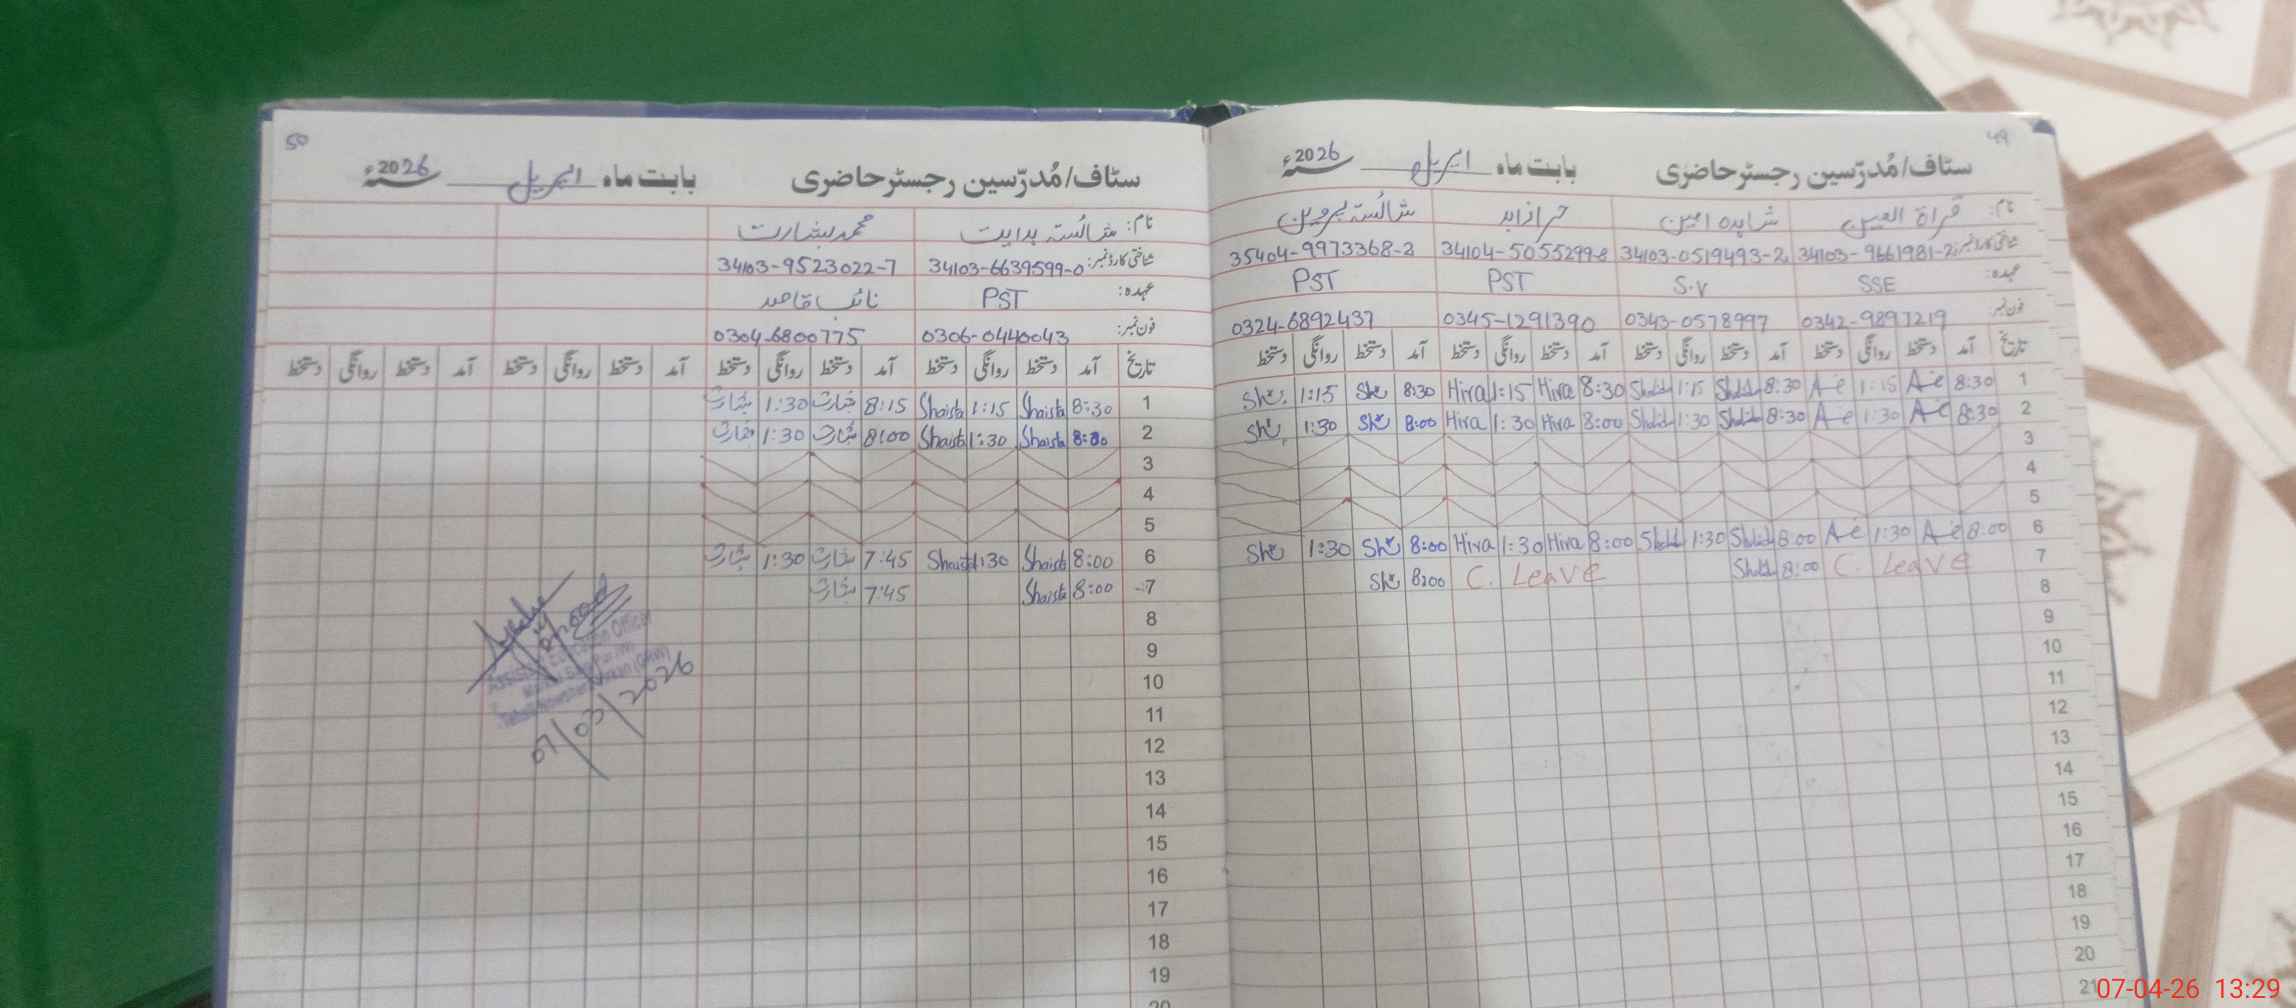 49
سٹاف/مُدرّسین رجسٹر حاضری بابت ماہ اپریل 2026ء
نام: قراۃ العین شاہدہ امین حرا زاہد شائستہ پروین
شناختی کارڈ نمبر: 34103-9661981-2 34103-0519493-2 34104-5055299-8 35404-9973368-2
عہدہ: SSE S.V PST PST
فون نمبر: 0342-9897219 0343-0578997 0345-1291390 0324-6892437
تاریخ آمد دستخط روانگی دستخط آمد دستخط روانگی دستخط آمد دستخط روانگی دستخط آمد دستخط روانگی دستخط
1 8:30 1:15 8:30 1:15 8:30 Hira 1:15 Hira 8:30 1:15
2 8:30 1:30 8:30 1:30 8:00 Hira 1:30 Hira 8:00 1:30
3
4
5
6 8:00 1:30 8:00 1:30 8:00 Hira 1:30 Hira 8:00 1:30
7 C. Leave 8:00 C. Leave 8:00
8
9
10
11
12
13
14
15
16
17
18
19
20
21
50
سٹاف/مُدرّسین رجسٹر حاضری بابت ماہ اپریل 2026ء
نام: شائستہ ہدایت محمد بشارت
شناختی کارڈ نمبر: 34103-6639599-0 34103-9523022-7
عہدہ: PST نائب قاصد
فون نمبر: 0306-0440043 0304-6800775
تاریخ آمد دستخط روانگی دستخط آمد دستخط روانگی دستخط آمد دستخط روانگی دستخط آمد دستخط روانگی دستخط
1 8:30 Shaista 1:15 Shaista 8:15 بشارت 1:30 بشارت
2 8:00 Shaista 1:30 Shaista 8:00 بشارت 1:30 بشارت
3
4
5
6 8:00 Shaista 1:30 Shaista 7:45 بشارت 1:30 بشارت
7 8:00 Shaista 7:45 بشارت
8
9
10
11
12
13
14
15
16
17
18
19
20
Education Officer
07/03/2026
07-04-26 13:29